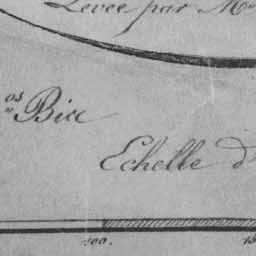 Levée par M
os Bice
Echelle d
100. 15